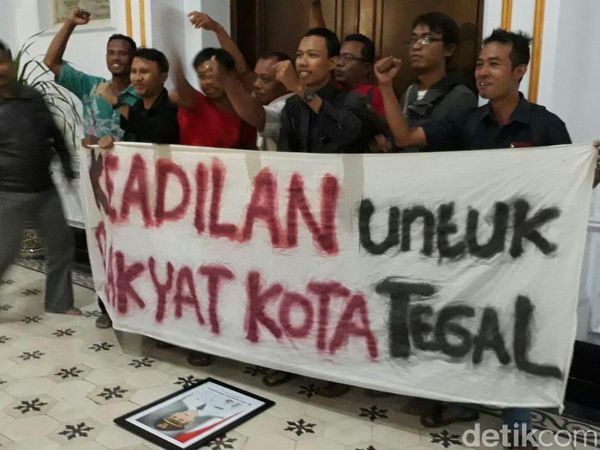 KEADILAN UNTUK
RAKYAT KOTA TEGAL
detikcom